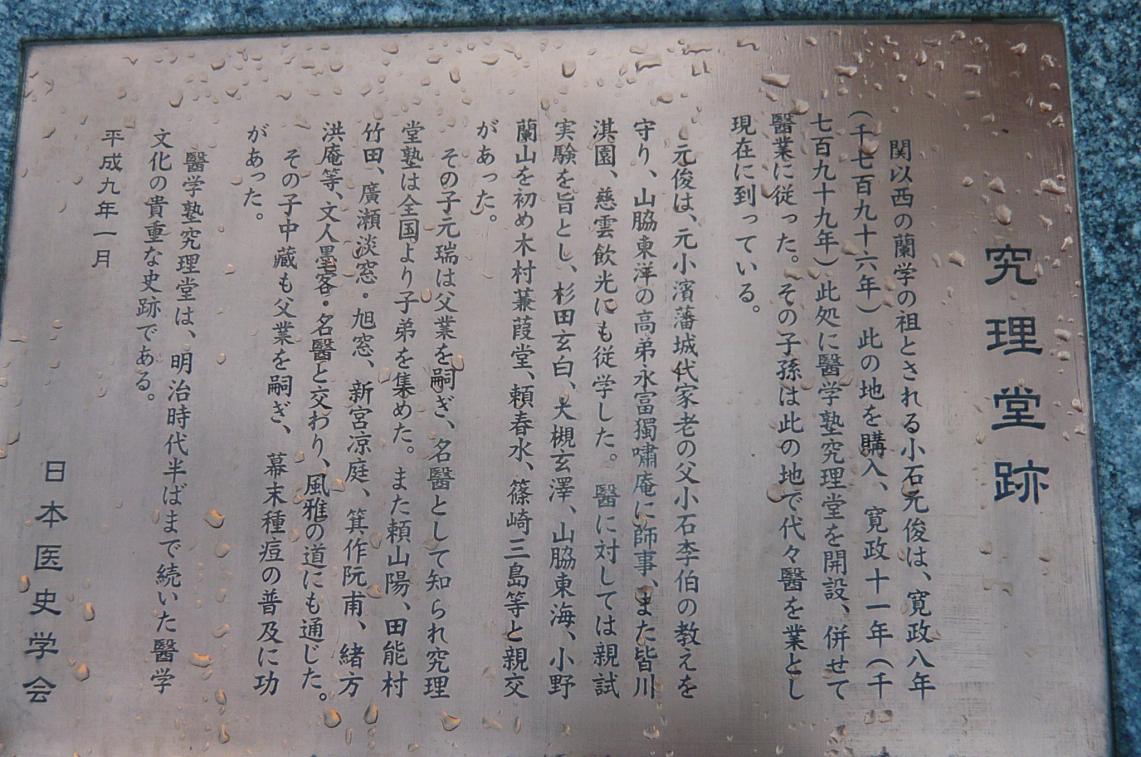 究理堂跡
関以西の蘭学の祖とされる小石元俊は、寛政八年
(千七百九十六年)此の地を購入、寛政十一年(千
七百九十九年)此処に醫学塾究理堂を開設、併せて
醫業に従った。その子孫は此の地で代々醫を業とし
現在に到っている。
元俊は、元小濱藩城代家老の父小石李伯の教えを
守り、山脇東洋の高弟永富獨嘯庵に師事、また皆川
淇園、慈雲飲光にも従学した。醫に対しては親試
実験を旨とし、杉田玄白、大槻玄澤、山脇東海、小野
蘭山を初め木村蒹葭堂、頼春水、篠崎三島等と親交
があった。
その子元瑞は父業を嗣ぎ、名醫として知られ究理
堂塾は全国より子弟を集めた。また頼山陽、田能村
竹田、廣瀬淡窓・旭窓、新宮凉庭、箕作阮甫、緒方
洪庵等、文人墨客・名醫と交わり、風雅の道にも通じた。
その子中蔵も父業を嗣ぎ、幕末種痘の普及に功
があった。
醫学塾究理堂は、明治時代半ばまで続いた醫学
文化の貴重な史跡である。
平成九年一月
日本医史学会